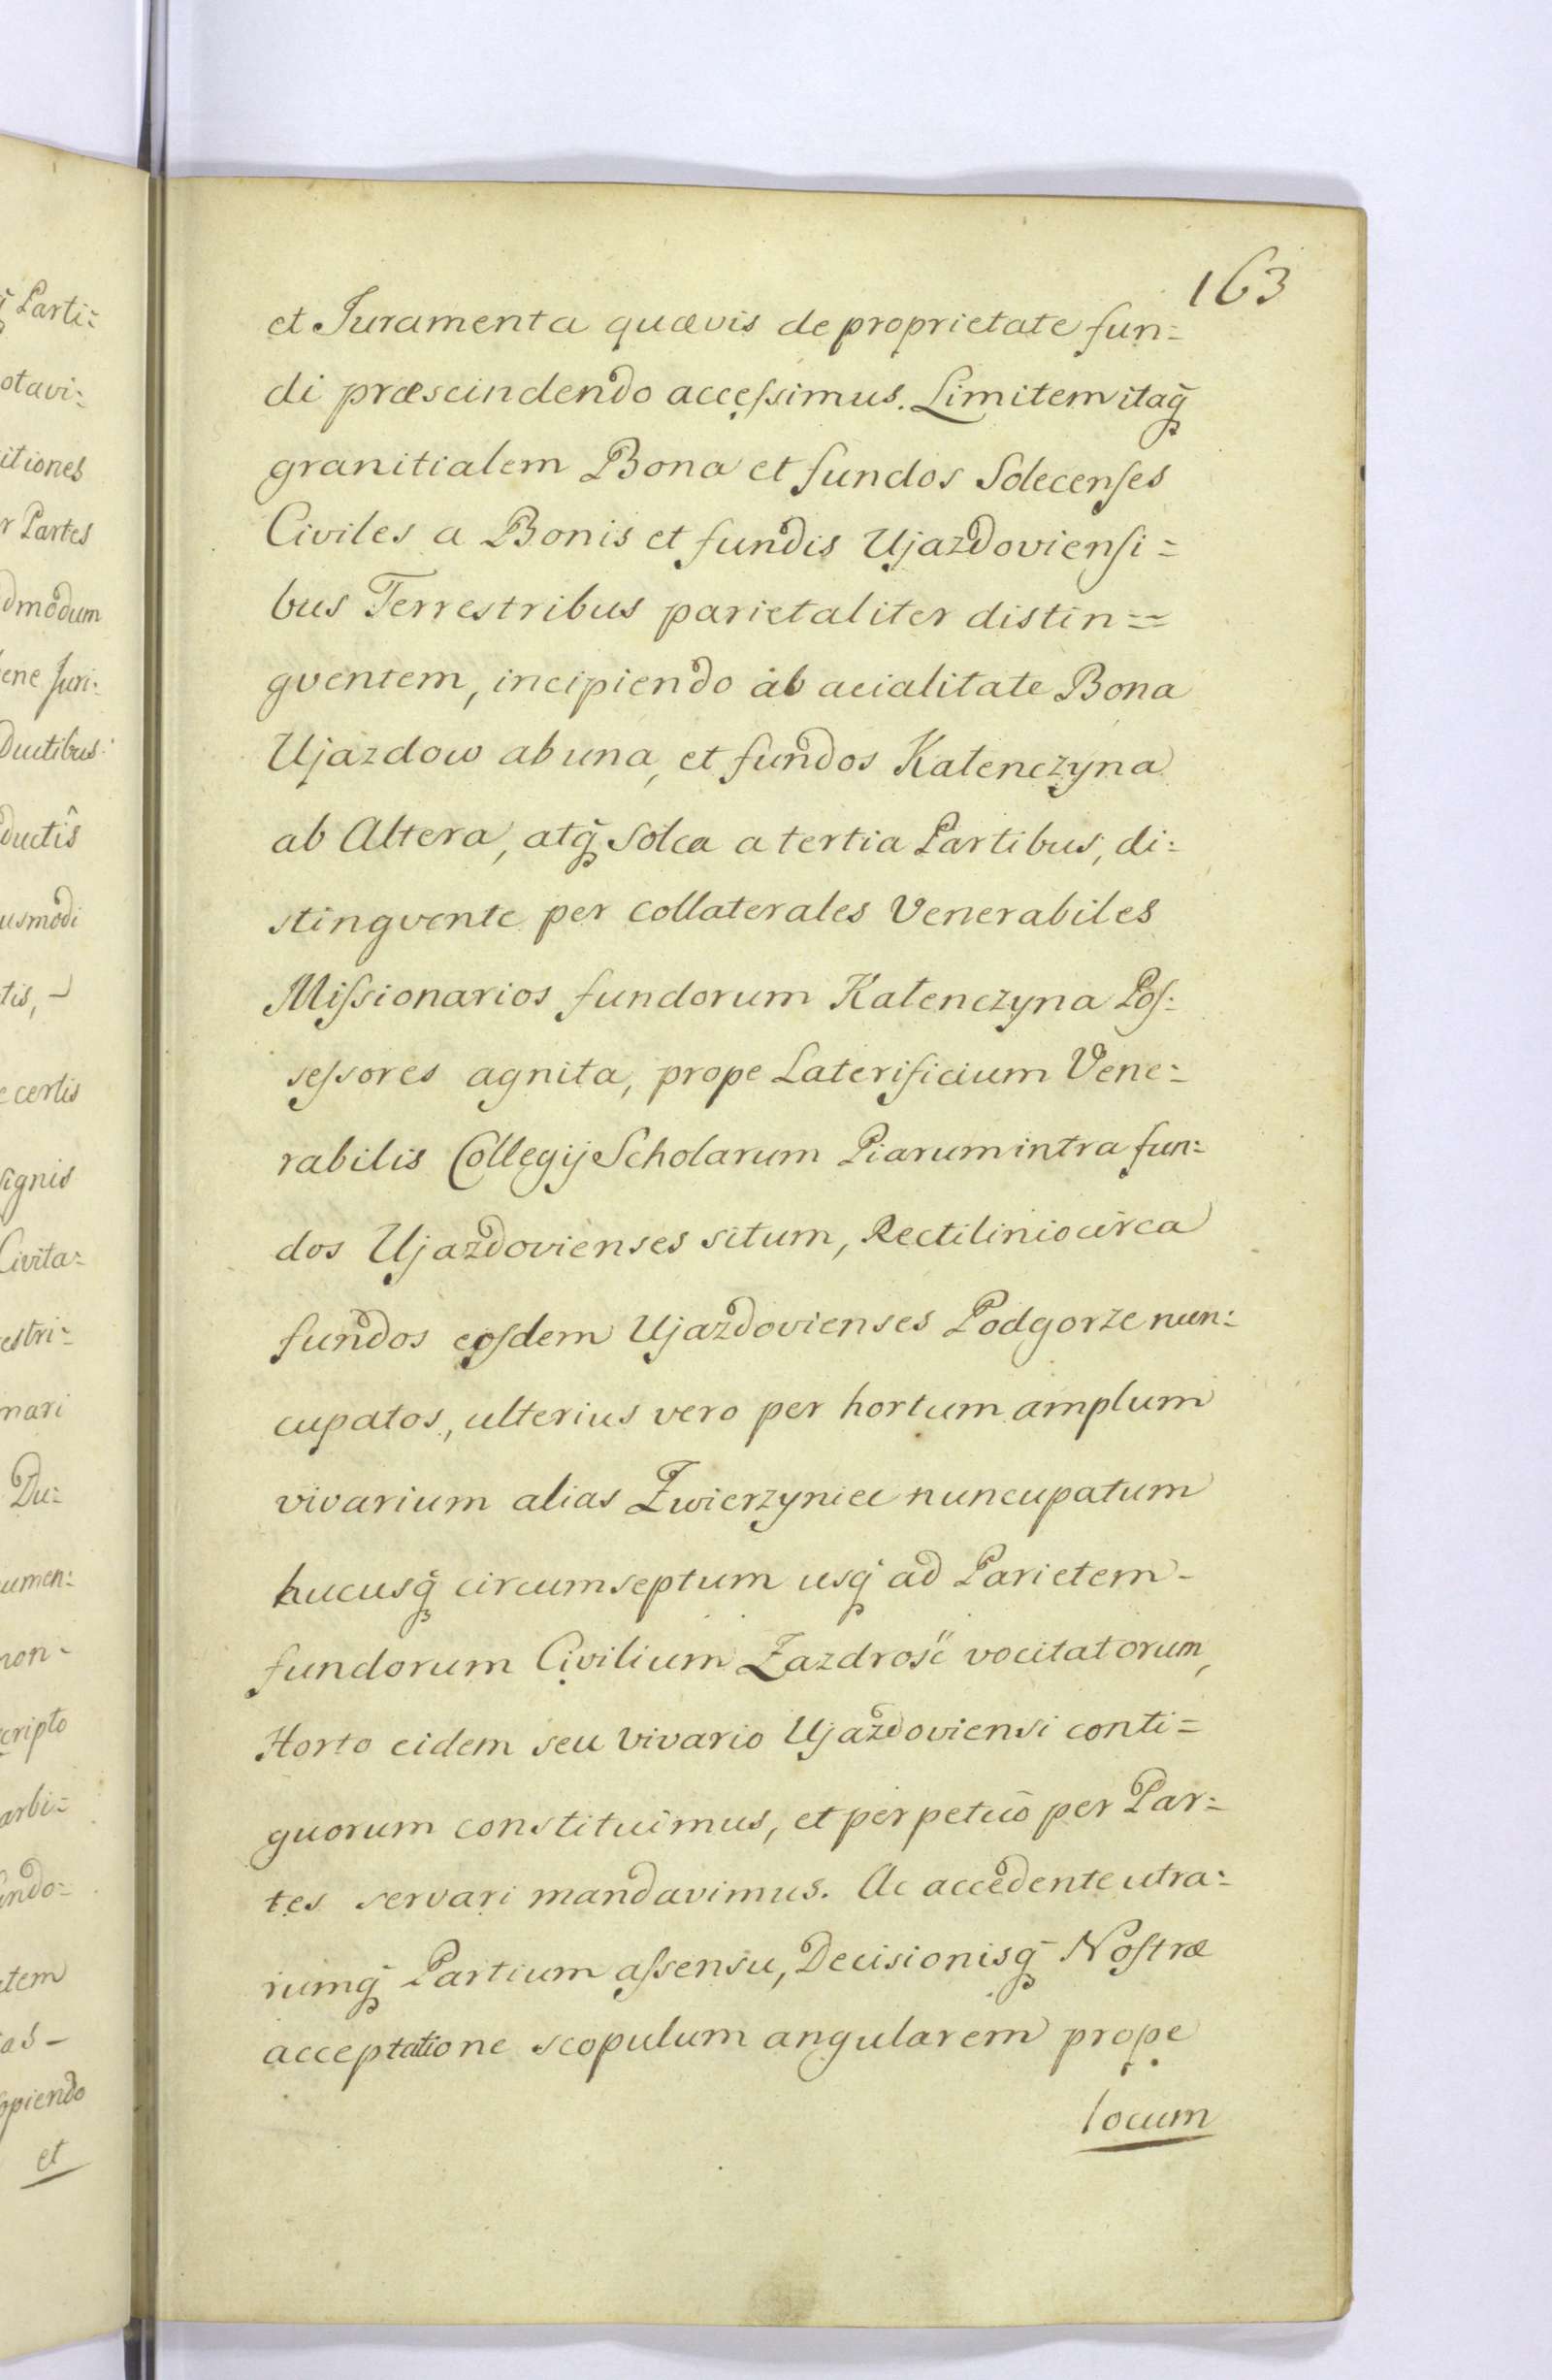 163
et Juramenta quævis de proprietate fun=
di præscindendo accessimus. Limitem itaq̃
granitialem Bona et fundos Solecenses
Civiles a Bonis et fundis Ujazdoviensi=
bus Terrestribus parietaliter distin==
gventem, incipiendo ab acialitate Bona
Ujazdow ab una, et fundos Kalenczyna
ab Altera, atq̃ Solca a tertia Partibus, di=
stingvente per collaterales Venerabiles
Missionarios fundorum Kalenczyna Pos=
sessores agnita, prope Laterificium Vene=
rabilis Collegij Scholarum Piarum intra fun=
dos Ujazdovienses situm, Rectilinio circa
fundos eosdem Ujazdovienses Podgorze nun=
cupatos, ulterius vero per hortum amplum
vivarium alias Zwierzyniec nuncupatum
hucusq̃ circumseptum usq̃ ad Parietem -
fundorum Civilium Zazdrość vocitatorum,
Horto eidem seu vivario Ujazdoviensi conti=
guorum constituimus, et perpetuo per Par=
tes servari mandavimus. Ac accedente utra=
rumq̃ Partium assensu, Decisionisq̃ Nostræ
acceptatione scopulum angularem prope
locum
Parti=
otavi=
itiones
r Partes
dmodum
ene Juri=
ductibus
ductîs
usmodi
tis, -
e certis
signis
Civita=
estri=
nari
Du=
umen=
non -
cripto
arbi=
undo=
tem
as -
opiendo
et